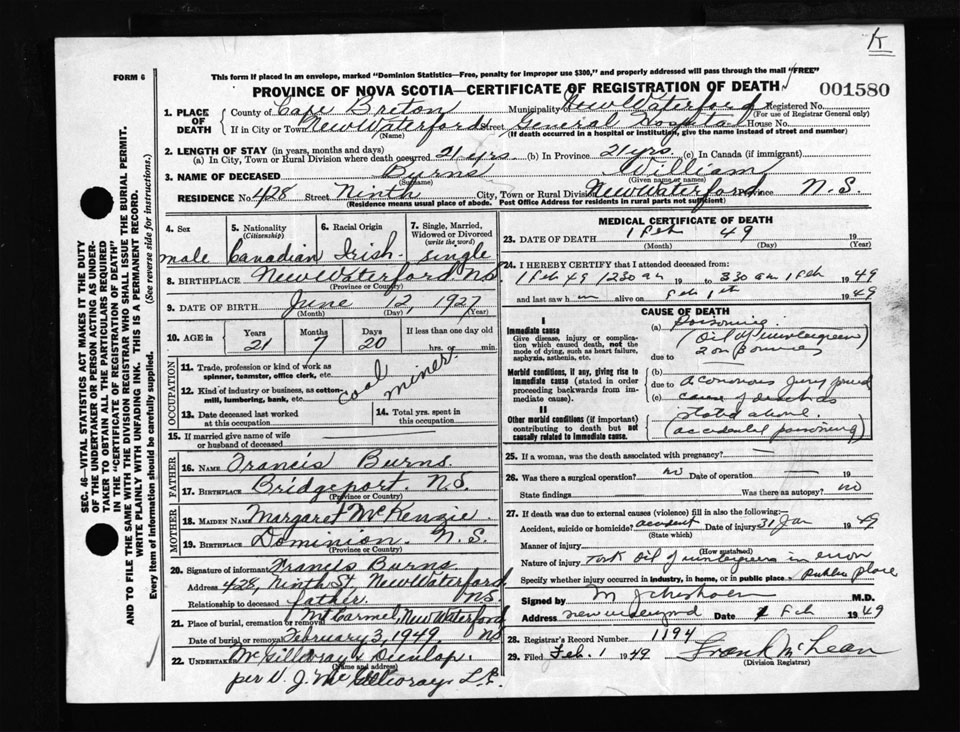 K
FORM 6
This form if placed in an envelope, marked "Dominion Statistics—Free, penalty for improper use $300," and properly addressed will pass through the mail "FREE"
PROVINCE OF NOVA SCOTIA—CERTIFICATE OF REGISTRATION OF DEATH
001580
1. PLACE OF DEATH
County of Cape Breton Municipality of New Waterford Registered No.
(For use of Registrar General only)
If in City or Town New Waterford Street General Hospital House No.
(Name) (If death occurred in a hospital or institution, give the name instead of street and number)
2. LENGTH OF STAY (in years, months and days)
(a) In City, Town or Rural Division where death occurred 21 yrs. (b) In Province 21 yrs. (c) In Canada (if immigrant)
3. NAME OF DECEASED Burns William
(Surname) (Given name or names)
RESIDENCE No. 428 Street Ninth City, Town or Rural Division New Waterford Province N.S.
(Residence means usual place of abode. Post Office Address for residents in rural parts not sufficient)
4. Sex
male
5. Nationality
(Citizenship)
Canadian
6. Racial Origin
Irish
7. Single, Married, Widowed or Divorced
(write the word)
Single
8. BIRTHPLACE New Waterford N.S.
(Province or Country)
9. DATE OF BIRTH June 12, 1927
(Month) (Day) (Year)
10. AGE in
Years Months Days If less than one day old
21 7 20 hrs. or min.
OCCUPATION
11. Trade, profession or kind of work as spinner, teamster, office clerk, etc.
12. Kind of industry or business, as cotton-mill, lumbering, bank, etc.
coal miner.
13. Date deceased last worked at this occupation
14. Total yrs. spent in this occupation
15. If married give name of wife or husband of deceased
FATHER
16. NAME Francis Burns.
17. BIRTHPLACE Bridgeport. N.S.
(Province or Country)
MOTHER
18. MAIDEN NAME Margaret McKenzie.
19. BIRTHPLACE Dominion. N.S.
(Province or Country)
20. Signature of informant Francis Burns.
Address 428, Ninth St, New Waterford
Relationship to deceased father. NS.
21. Place of burial, cremation or removal Mt Carmel, New Waterford
Date of burial or removal February 3, 1949. NS
22. UNDERTAKER McGillvray & Dunlop.
(Name and address)
per J. McGillvoray
MEDICAL CERTIFICATE OF DEATH
23. DATE OF DEATH 1 Feb 49
(Month) (Day) (Year)
24. I HEREBY CERTIFY that I attended deceased from:
1 Feb 49 1230 am 19 to 330 am 1 Feb 1949
and last saw h im alive on Feb 1st 1949
CAUSE OF DEATH
I
Immediate cause
Give disease, injury or complication which caused death, not the mode of dying, such as heart failure, asphyxia, asthenia, etc.
(a) Poisoning
(Oil of wintergreen)
due to
Morbid conditions, if any, giving rise to immediate cause (stated in order proceeding backwards from immediate cause).
(b)
due to a coroners jury found
(c) cause of death as
II
Other morbid conditions (if important) contributing to death but not causally related to immediate cause.
stated above.
(accidental poisoning)
25. If a woman, was the death associated with pregnancy? —
26. Was there a surgical operation? no Date of operation — 19
State findings Was there an autopsy? no
27. If death was due to external causes (violence) fill in also the following:
Accident, suicide or homicide? accident Date of injury 31 Jan 1949
(State which)
Manner of injury
(How sustained)
Nature of injury Took oil of wintergreen in error
Specify whether injury occurred in industry, in home, or in public place. Public place
Signed by M.D.
Address Date 1 Feb 1949
28. Registrar's Record Number 1194
29. Filed Feb. 1 1949 Frank McLean
(Division Registrar)
SEC. 46—VITAL STATISTICS ACT MAKES IT THE DUTY
OF THE UNDERTAKER OR PERSON ACTING AS UNDER-
TAKER TO OBTAIN ALL THE PARTICULARS REQUIRED
IN THE "CERTIFICATE OF REGISTRATION OF DEATH"
AND TO FILE THE SAME WITH THE DIVISION REGISTRAR WHO SHALL ISSUE THE BURIAL PERMIT.
WRITE PLAINLY WITH UNFADING INK. THIS IS A PERMANENT RECORD.
Every item of information should be carefully supplied. (See reverse side for instructions.)